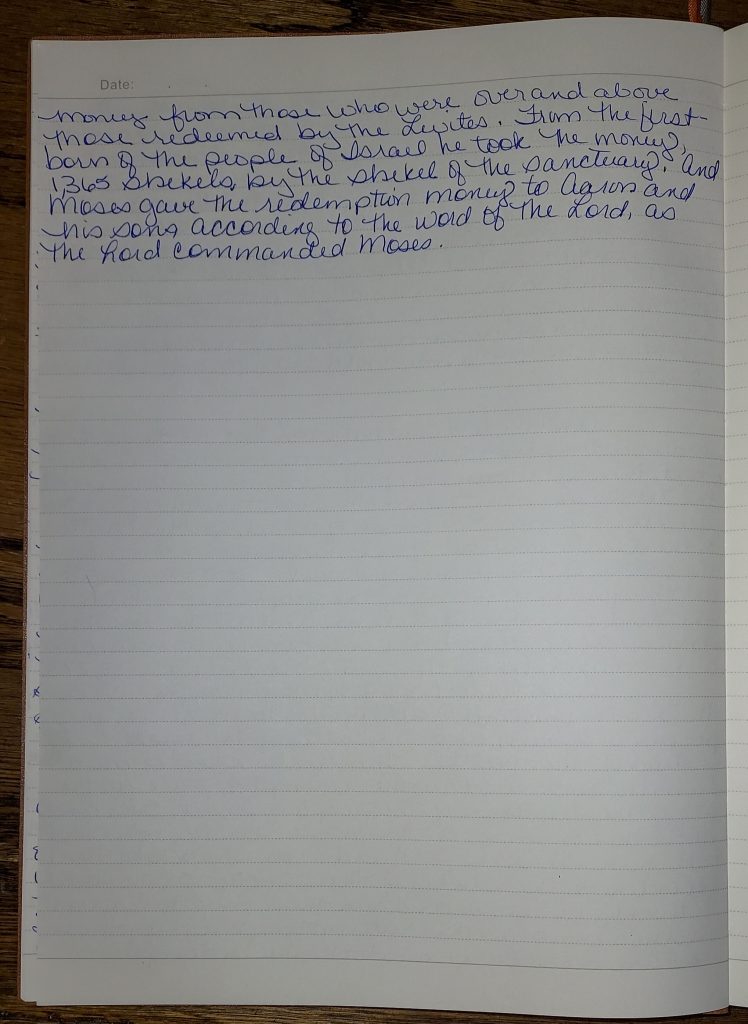 Date:
money from those who were over and above
those redeemed by the Levites. From the first-
born of the people of Israel he took the money,
1,365 shekels, by the shekel of the sanctuary. And
Moses gave the redemption money to Aaron and
his sons according to the word of the Lord, as
the Lord commanded Moses.